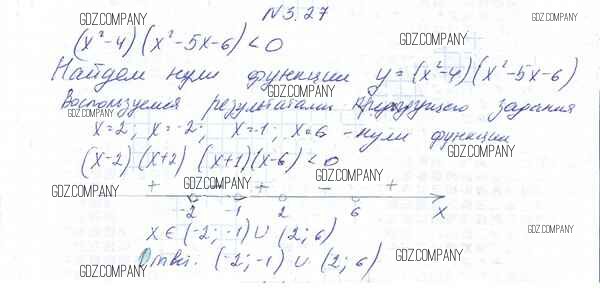 N 3.27
GDZ.COMPANY GDZ.COMPANY
(x²-4)(x²-5x-6)<0 GDZ.COMPANY
Найдем нули функции y=(x²-4)(x²-5x-6)
GDZ.COMPANY
Воспользуемся результатами предыдущего задания
GDZ.COMPANY
x=2; x=-2; x=-1; x=6 - нули функции
(x-2)(x+2)(x+1)(x-6)<0 GDZ.COMPANY
GDZ.COMPANY GDZ.COMPANY
+ - + - +
-2 -1 2 6 x
x∈(-2;-1)∪(2;6) GDZ.COMPANY
Ответ: (-2;-1)∪(2;6) GDZ.COMPANY
GDZ.COMPANY